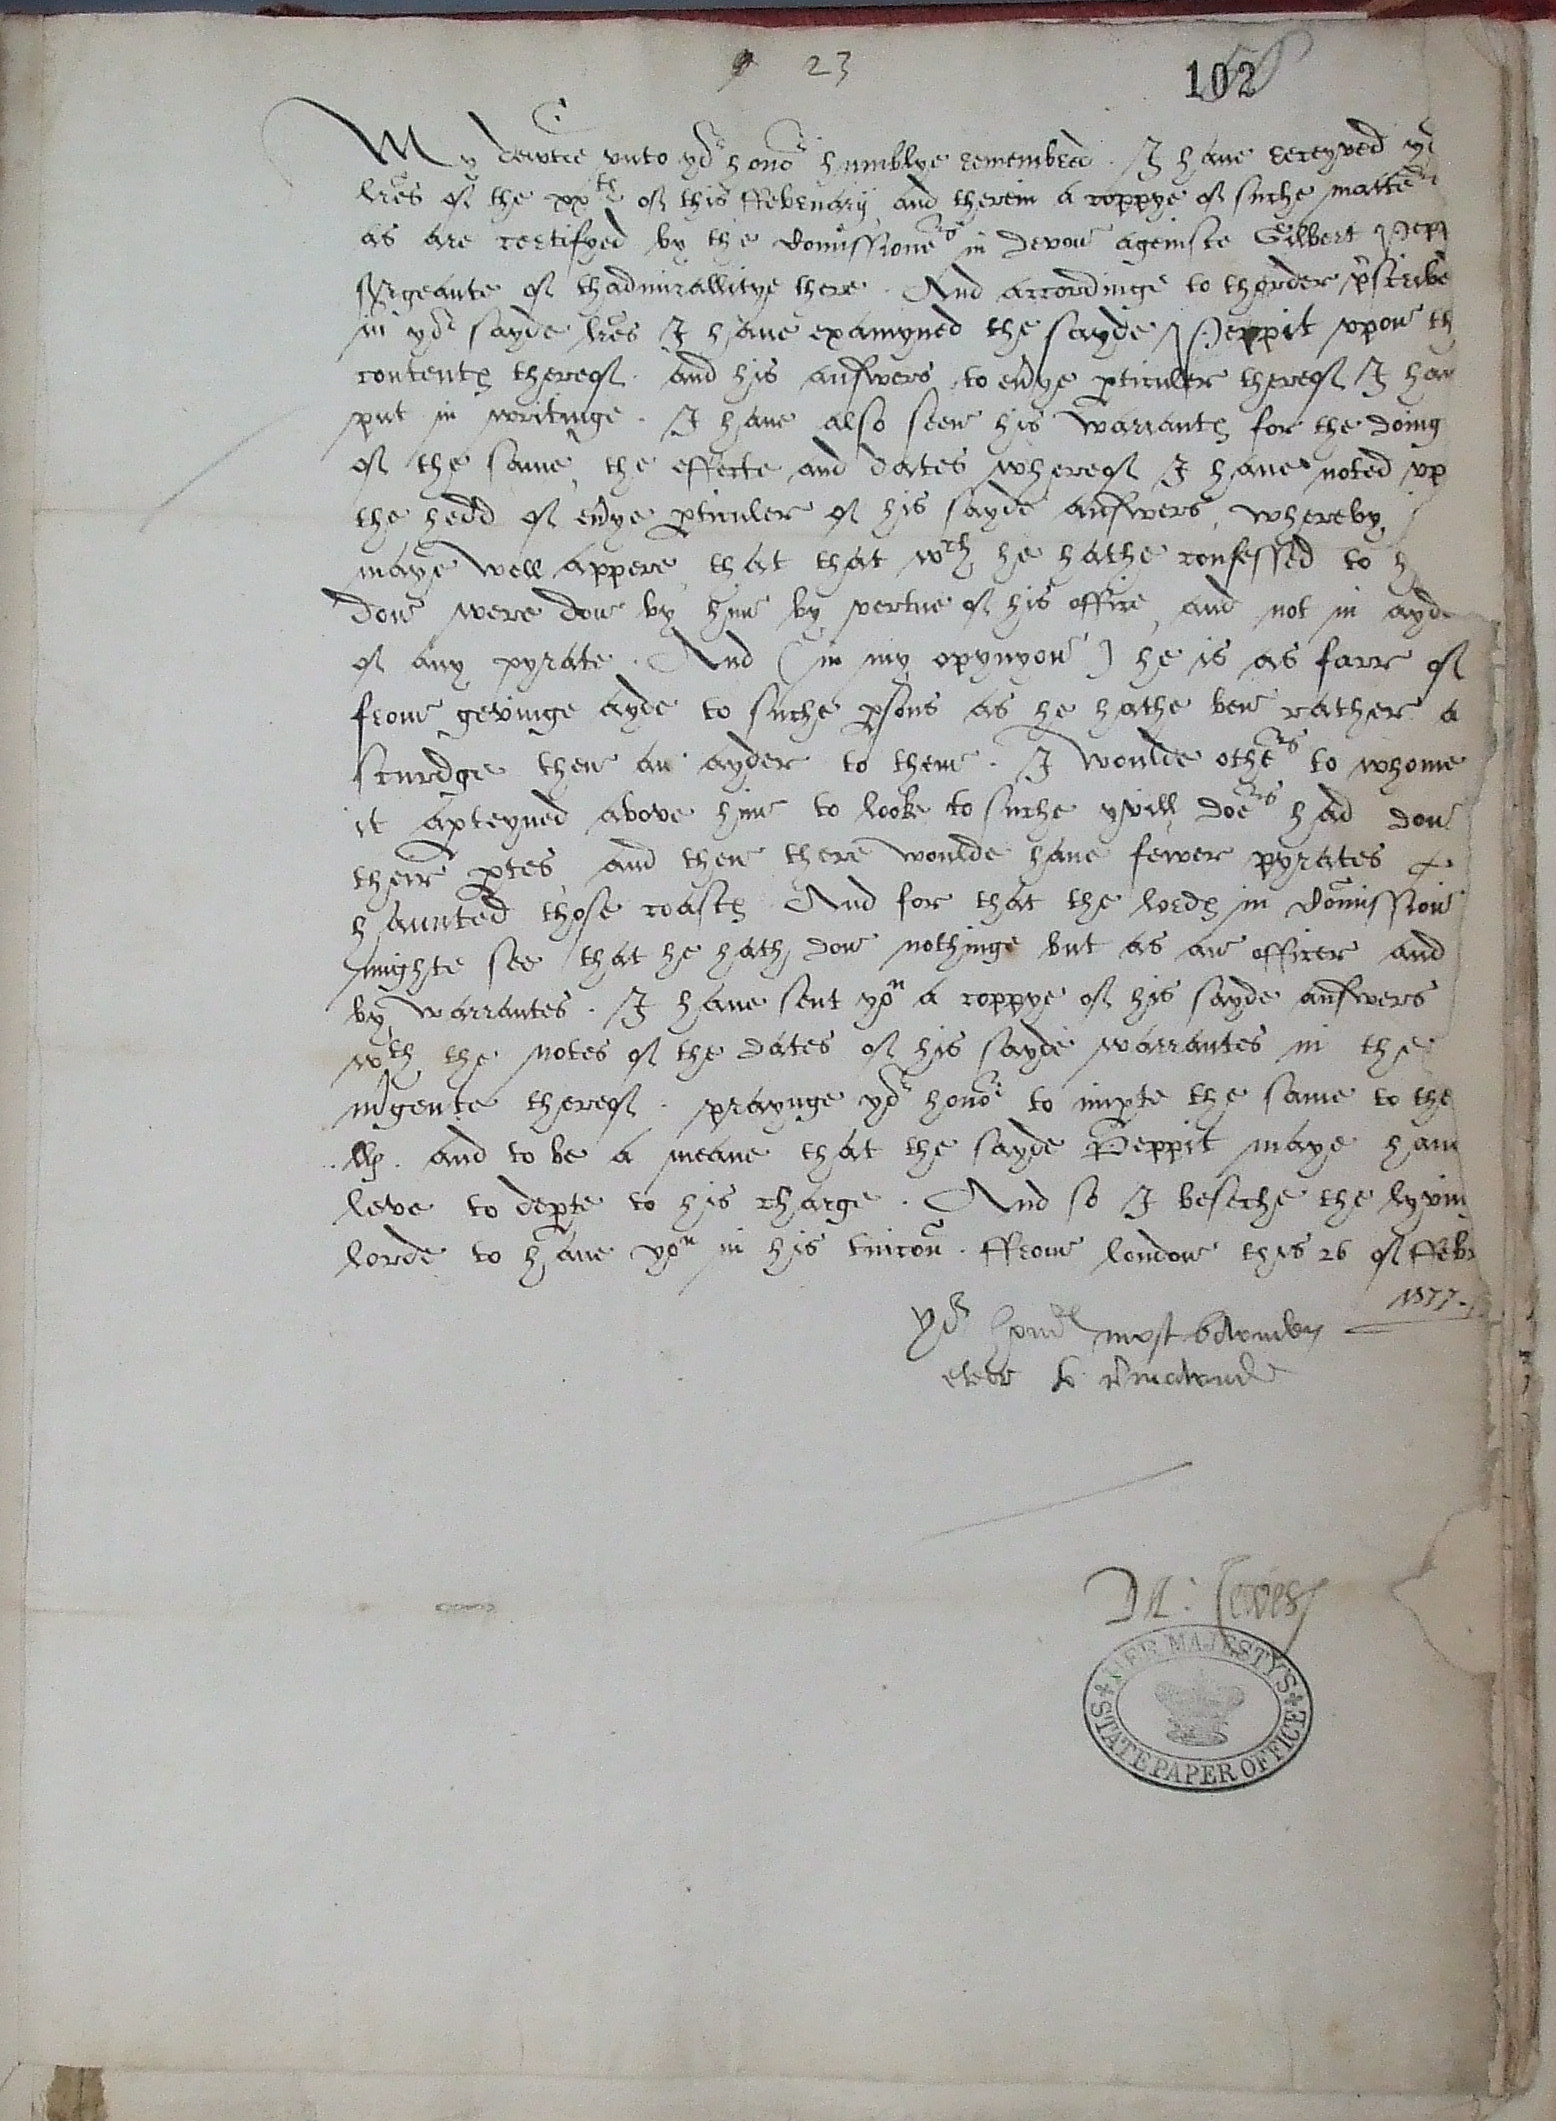 23
102
My dewtie vnto yor honor humblye remembred . I have receyved yo
lres of the xxth of this ffebruarij and therein a coppye of suche matters
as are certifyed by the Comissioners in Devon ageinste Gilbert Pepp
s'geante of thadmirallitye there . And accordinge to thorder p'scribe
in yor sayde lres I have examyned the sayde Peppit vpon th
contentes thereof . and his answers to eu'ye p'ticuler thereof I hau
put in writinge . I have also seen his warrantes for the doing
of the same , the effecte and dates whereof I have noted vp
the hedd of eu'ye p'ticuler of his sayde answers , whereby
maye well appere that that wch he hathe confessed to h
don were don by him by vertue of his office , and not in ayde
of any pyrate . And ( in my opynyon ) he is as farr of
from gevinge ayde to suche p'sons as he hathe ben rather a
scurdge then an ayder to them . I woulde others to whome
it apteyned above him to looke to suche yvill doers had don
their p'tes and then there woulde haue fewer pyrates
haunted those coastes And for that the lordes in Comission
mighte see that he hath don nothinge but as an officer and
by warrantes . I have sent you a coppye of his sayde answers
wth the notes of the dates of his sayde warrantes in the
m'gente thereof . praynge yor honor to imp'te the same to the
llps . and to be a meane that the sayde Peppit maye haue
leve to dep'te to his charge . And so I beseche the lyvin
lorde to have you in his tuicon . ffrom london this 26 of ffebr
1577
Yor hono most bownden
ever to comawnd
D. Lewes
HER MAJESTY'S
STATE PAPER OFFICE